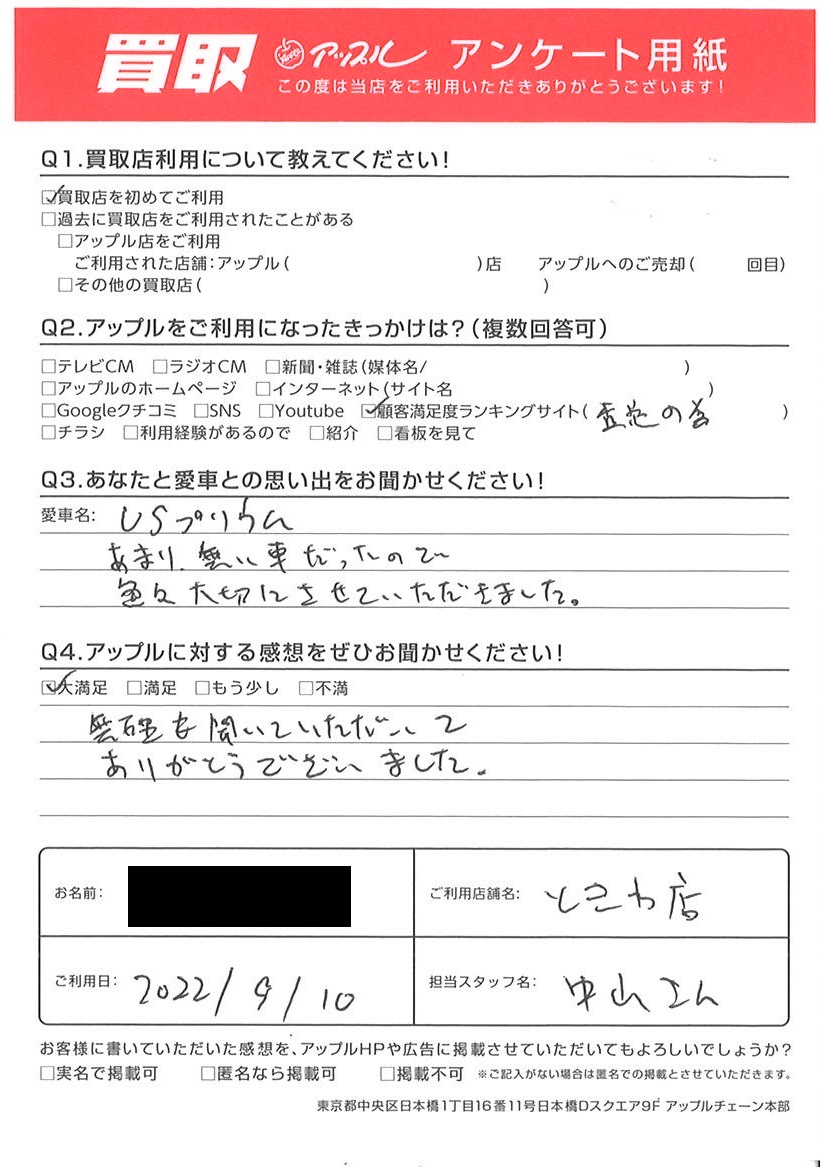 買取 アップル アンケート用紙
この度は当店をご利用いただきありがとうございます!
Q1.買取店利用について教えてください!
☑買取店を初めてご利用
□過去に買取店をご利用されたことがある
□アップル店をご利用
ご利用された店舗:アップル( )店 アップルへのご売却( 回目)
□その他の買取店( )
Q2.アップルをご利用になったきっかけは?(複数回答可)
□テレビCM □ラジオCM □新聞・雑誌(媒体名/ )
□アップルのホームページ □インターネット(サイト名 )
□Googleクチコミ □SNS □Youtube ☑顧客満足度ランキングサイト( の )
□チラシ □利用経験があるので □紹介 □看板を見て
Q3.あなたと愛車との思い出をお聞かせください!
愛車名: USプリウス
あまり無い車だったので
色々大切にさせていただきました。
Q4.アップルに対する感想をぜひお聞かせください!
☑大満足 □満足 □もう少し □不満
無理を聞いていただいて
ありがとうございました。
お名前: ご利用店舗名: ときわ店
ご利用日: 2022/9/10 担当スタッフ名: 中山さん
お客様に書いていただいた感想を、アップルHPや広告に掲載させていただいてもよろしいでしょうか?
□実名で掲載可 □匿名なら掲載可 □掲載不可 ※ご記入がない場合は匿名での掲載とさせていただきます。
東京都中央区日本橋1丁目16番11号日本橋Dスクエア9F アップルチェーン本部